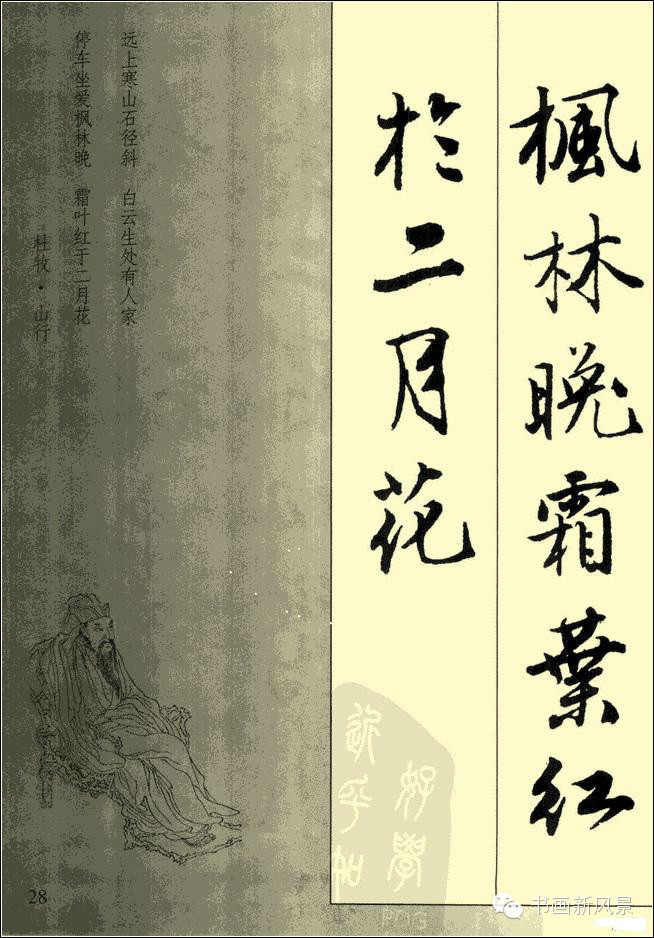 楓林晚霜葉紅
於二月花
远上寒山石径斜　白云生处有人家
停车坐爱枫林晚　霜叶红于二月花
杜牧·山行
好學
近乎知
PDG
28
书画新风景